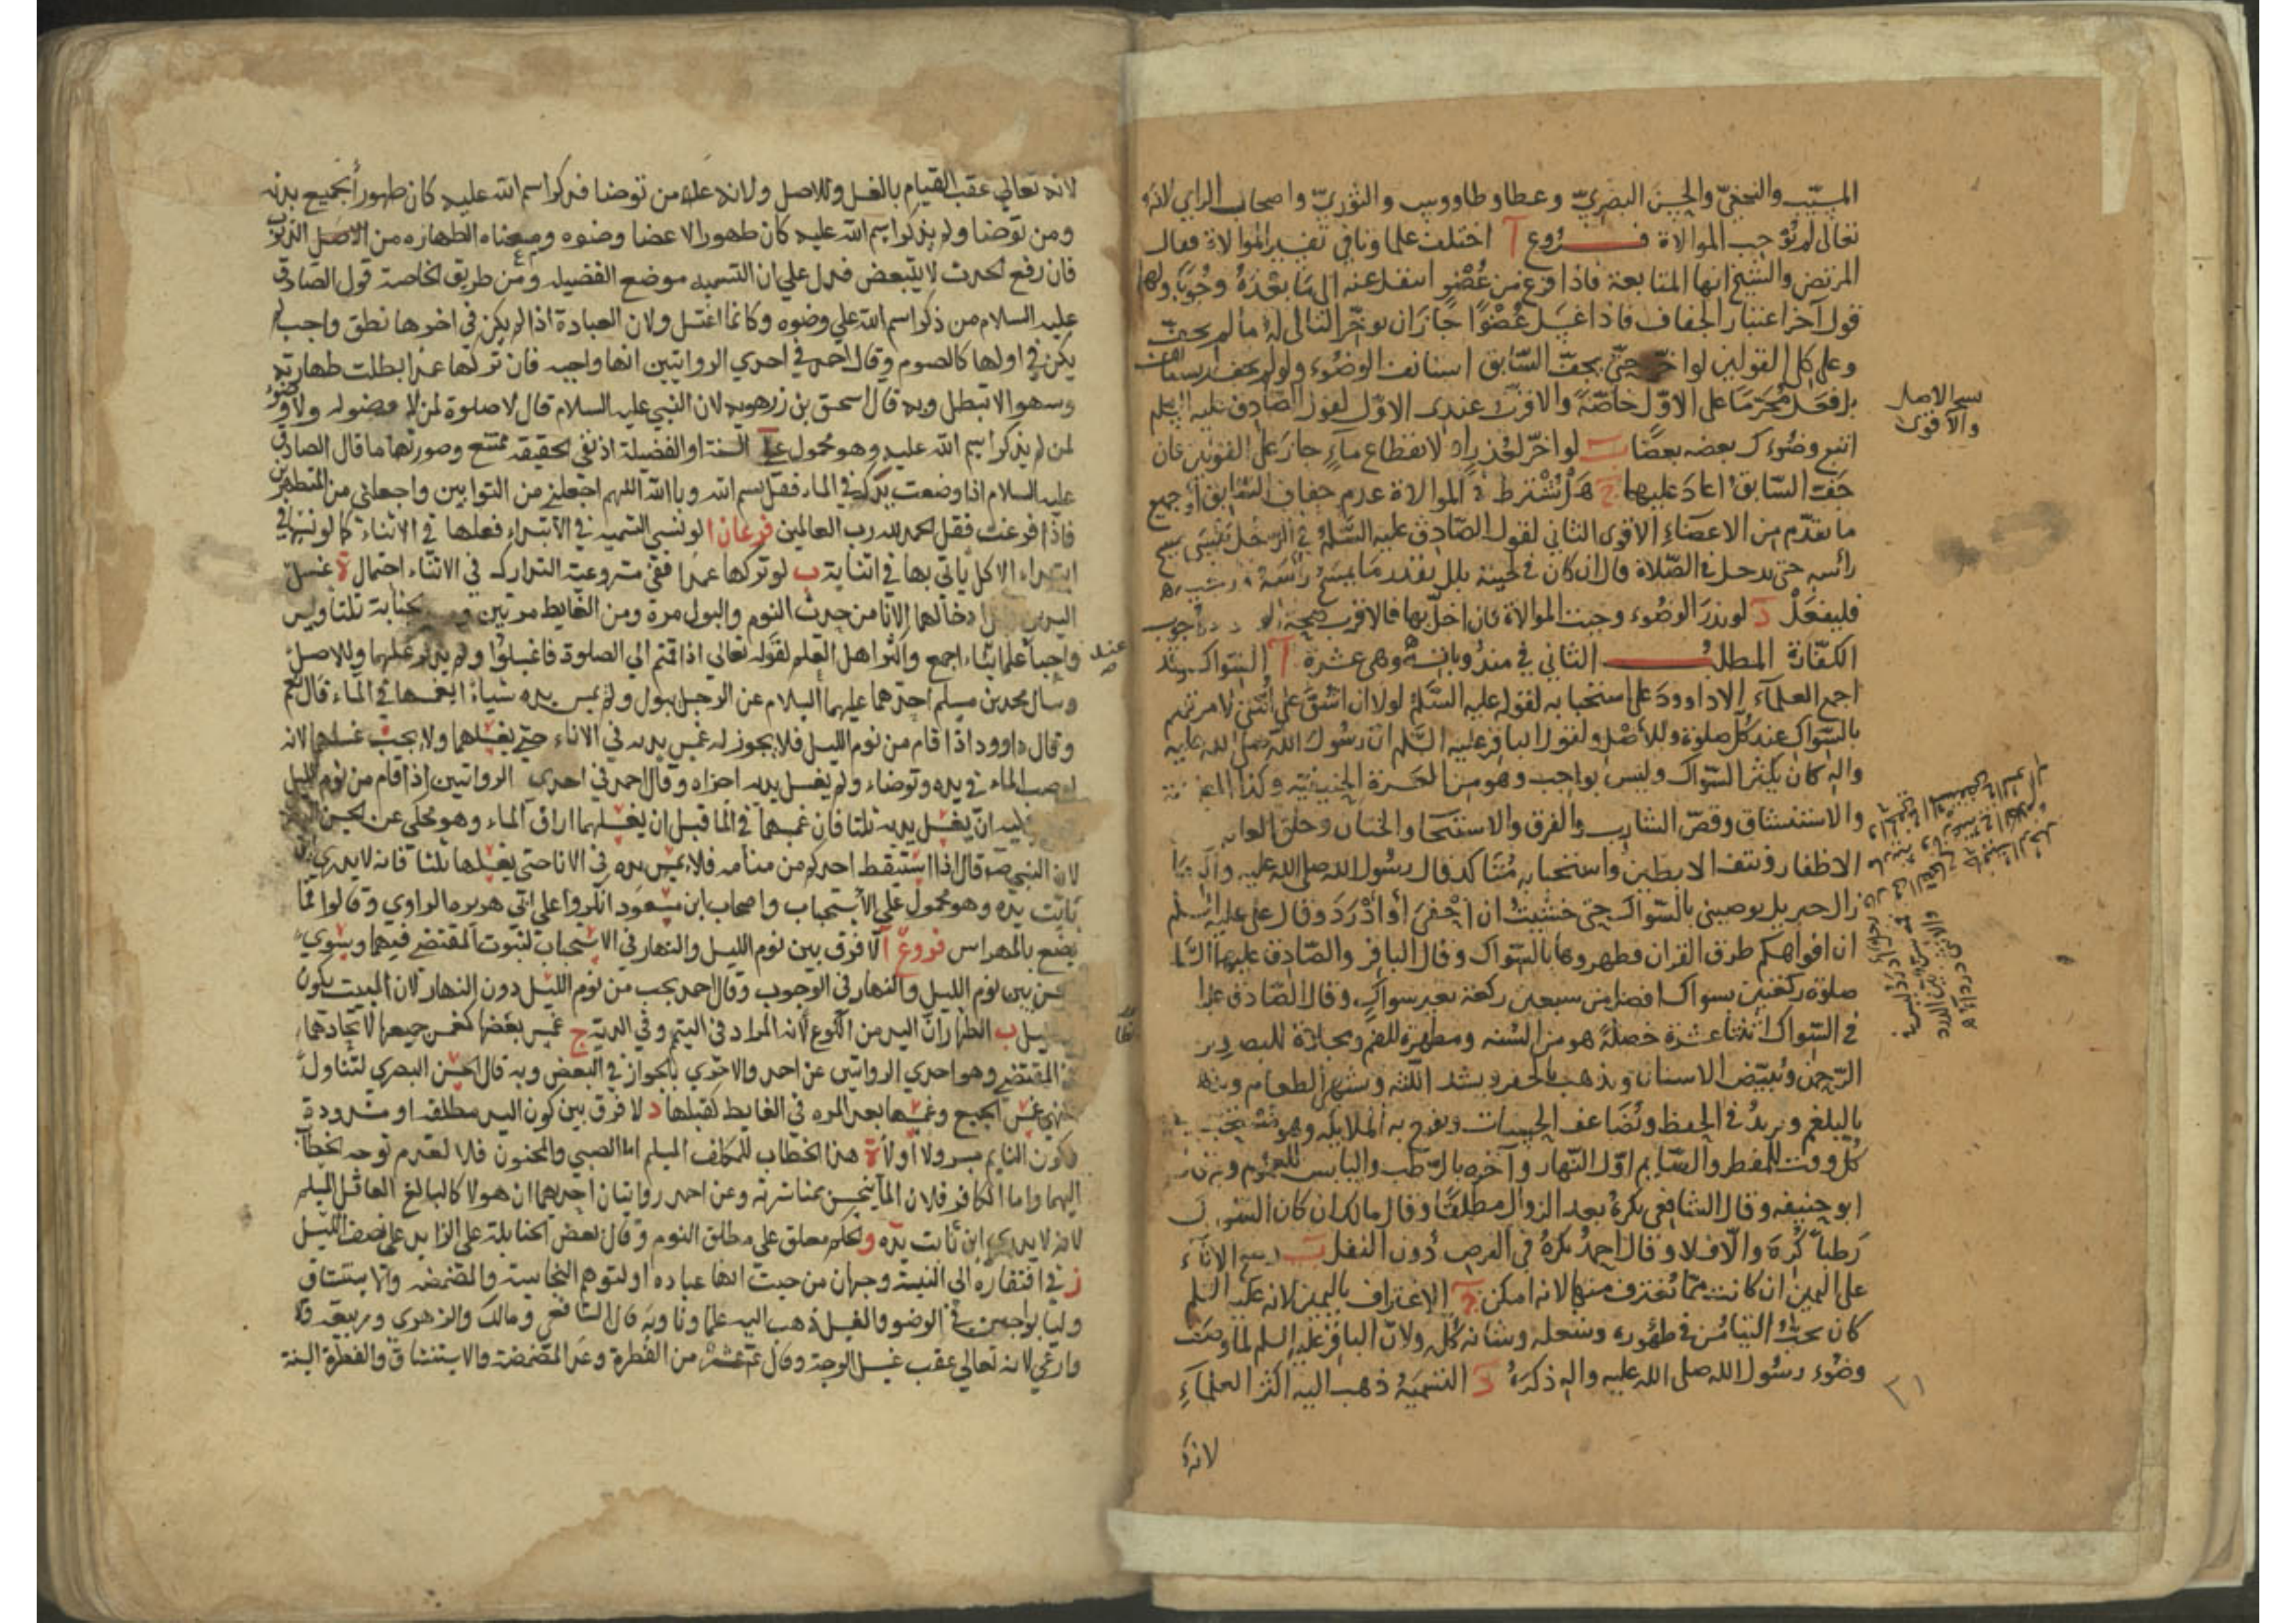 المسيّب والنخعيّ والحسن البصريّ وعطا وطاووس والثوريّ واصحاب الراي لانه
تعالى لم يوجب الموالاة فروع آ اختلف علماونا في تفسير الموالاة فقال
المرتضى والشيخ انها المتابعة فاذا فرغ من عُضْوٍ انتقل عنه الى ما بعْدَهُ وجُوبًا ولهما
قول آخر اعتبار الجفاف فاذا غسل عُضْوًا جاز ان يوخّر التالى له ما لم يجفّ
وعلى كل القولين لو اخّر حتى يجفّ السّابق استانف الوضُوء ولو لم يجف لم يستانف
بل فعَل مُحرّمًا على الاوّل خاصّةً والاقرب عندى الاوّل لقول الصّادق عليه السلم
اتبع وضُوءك بعضه بعضًا ب لو اخّر لعُذر او لانقطاع ماءٍ جاز على القولين فان
جفّ السّابق اعاد عليهما ج هَلْ يُشْترط في الموالاة عدم جفاف السّابق او جميع
ما تقدّم من الاعضاء الاقوى الثاني لقول الصّادق عليه السّلم في الرّجل ينسى مسح
رأسه حتى يدخل في الصّلاة قال ان كان في لحيته بلل بقدر ما يمسح رأسه ورجليه
فليفعَلْ د لو نذر الوضُوء وجبت الموالاة فان اخلّ بها فالاقرب صحة الوضوء ووجوب
الكفّارة المطلب الثاني في مندوباته وهى عشرة آ السّواك وقد
اجمع العلماء الا داوودَ على استحبابه لقوله عليه السّلم لولا ان اشُقّ على اُمّتي لامرتهم
بالسّواك عند كلّ صلوة وللأصْل ولقول الباقر عليه السّلم انّ رسُول الله صلى الله عليه
واله كان يكثر السّواك وليس بواجب وهو من الحنيفيّة وكذا المضمضة
والاستنشاق وقصّ الشارب والفرق والاستنجا والختان وحلق العانه
الاظفار ونتف الابطين واستحبابه مُتاكد قال رسُول الله صلى الله عليه وآله ما
زال جبريل يوصيني بالسّواك حتى خشيتُ ان اُحْفيَ أو أدْرَدَ وقال على عليه السلم
ان افواهكم طرق القران فطهروها بالسّواك وقال الباقر والصّادق عليهما السلم
صلوة ركعتين بسواك افضل من سبعين ركعة بغير سواكٍ وقال الصّادق عليه السلم
في السّواك اثنتا عشرة خصلةً هو من السُّنه ومطهرة للفم ومجلاة للبصر ويرضى
الرّحمن ويُبيّض الاسنان ويذهب بالحفر ويشد اللثه ويشهى الطعام ويذهب
بالبلغم ويزيدُ في الحفظ ويُضَاعف الحسنات ويفرح به الملايكه وهو مُستحب
كُل وقت للمفطر والصّايم اوّل النّهار وآخره بالرّطب واليابس للعموم وبه قال
ابو حنيفه وقال الشافعي يكرهُ بعد الزوال مطلقًا وقال مالك ان كان السّواك
رَطباً كُرِهَ والّا فلا وقال احمدُ يكرهُ في الفرض دُون النفل ب وضع الاناء
على اليمين ان كانت ممّا يُغترف منها لانه امكن ج الاغتراف باليمين لانه عليه السلم
كان يحبُّ التيامُن في طَهُوره وتنعله وشانه كُلّه ولانّ الباقر عليه السلم لما وصف
وضُوء رسُول الله صلى الله عليه واله ذكرهُ د التسْميَةُ ذهب اليه اكثر العلماءِ
لانهُ
والاقوى
٢١
لانه تعالى عقب القيام بالغسل وللاصل ولانه عليه من توضا فذكر اسم الله عليه كان طهوراً لجميع بدنه
ومن توضا ولم يذكر اسم الله عليه كان طهورا لاعضا وضوه ومعناه الطهاره من الذنوب
فان رفع الحدث لا يتبعض فدل علي ان التسميه موضع الفضيله ومن طريق الخاصة قول الصادق
عليه السلام من ذكر اسم الله علي وضوه وكانما اغتسل ولان العبادة اذا لم يكن في اخرها نطق واجب لم
يكن في اولها كالصوم وقال احمد في احدي الروايتين انها واجبه فان تركها عمدا بطلت طهارته
وسهوا لا تبطل وبه قال اسحق بن زهويه لان النبي عليه السلام قال لا صلوة لمن لا وضو له ولا وضوء
لمن لم يذكر اسم الله عليه وهو محمول علي السنة او الفضيلة اذ نفي الحقيقه ممتنع وصورتها ما قال الصادق
عليه السلام اذا وضعت يدك في الماء فقل بسم الله وبالله اللهم اجعلني من التوابين واجعلني من المتطهرين
فاذا فرغت فقل الحمد لله رب العالمين فرعان ا لو نسي التسميه في الابتداء فعلها في الاثناء كما لو نسيها في
ابتداء الاكل ياتي بها في اثنايه ب لو تركها عمدا ففي مشروعية التدارك في الاثناء احتمال ة غسل
اليدين قبل ادخالهما الانا من حدث النوم والبول مرة ومن الغايط مرتين ومن الجنابة ثلثا وليس
واجباً عند علمائنا اجمع واكثر اهل العلم لقوله تعالي اذا قمتم الي الصلوة فاغسلوا ولم يذكر غسلهما وللاصل
وسأل محمد بن مسلم احدهما عليهما السلام عن الرجل يبول ولم يمس يده شيأ ايغمسها في الماء قال نعم
وقال داوود اذا قام من نوم الليل فلا يجوز له غمس يديه في الاناء حتي يغسلهما ولا يجب غسلهما لانه
لو صب الماء في يده وتوضاء ولم يغسل يديه اجزاه وقال احمد في احدي الروايتين اذا قام من نوم الليل
عليه ان يغسل يديه ثلثا فان غمسهما في الما قبل ان يغسلهما اراق الماء وهو محكي عن الحسن
لان النبي ص قال اذا استيقظ احدكم من منامه فلا يغمس يده في الانا حتي يغسلها ثلثا فانه لا يدري اين
باتت يده وهو محمول علي الاستحباب واصحاب ابن مسعود انكروا علي ابي هريره الراوي وقالوا فما
يصنع بالمهراس فروع آ لا فرق بين نوم الليل والنهار في الاستحباب لثبوت المقتضي فيهما ويسوي
الحسن بين نوم الليل والنهار في الوجوب وقال احمد يجب من نوم الليل دون النهار لان المبيت يكون
بالليل ب الظاهر ان اليد من الكوع لانه المراد في التيمم وفي الدية ج غمس بعضها كغمس جميعها لاتحادهما
في المقتضي وهو احدي الروايتين عن احمد والاخري بالجواز في البعض وبه قال الحسن البصري لتناول
النهي غمس الجميع وغمسها بعد المره في الغايط كقبلها د لا فرق بين كون اليد مطلقه او مشدودة
وكون النايم مسرولا اولا ة هذا الخطاب للمكلف المسلم اما الصبي والمجنون فلا لعدم توجه الخطاب
اليهما واما الكافر فلان الما ينجس بمباشرته وعن احمد روايتان احدهما ان هولا كالبالغ العاقل المسلم
لانه لا يدري اين باتت يده و الحكم معلق علي مطلق النوم وقال بعض الحنابلة علي الزايد علي نصف الليل
ز في افتقاره الي النية وجهان من حيث انها عباده او لتوهم النجاسة و المضمضه والاستنشاق
وليسا بواجبين في الوضو والغسل ذهب اليه علماونا وبه قال الشافعي ومالك والزهري وربيعه
والاوزاعي لانه تعالي عقب غسل الوجه وقال ع عشر من الفطرة وعد المضمضة والاستنشاق والفطرة السنة